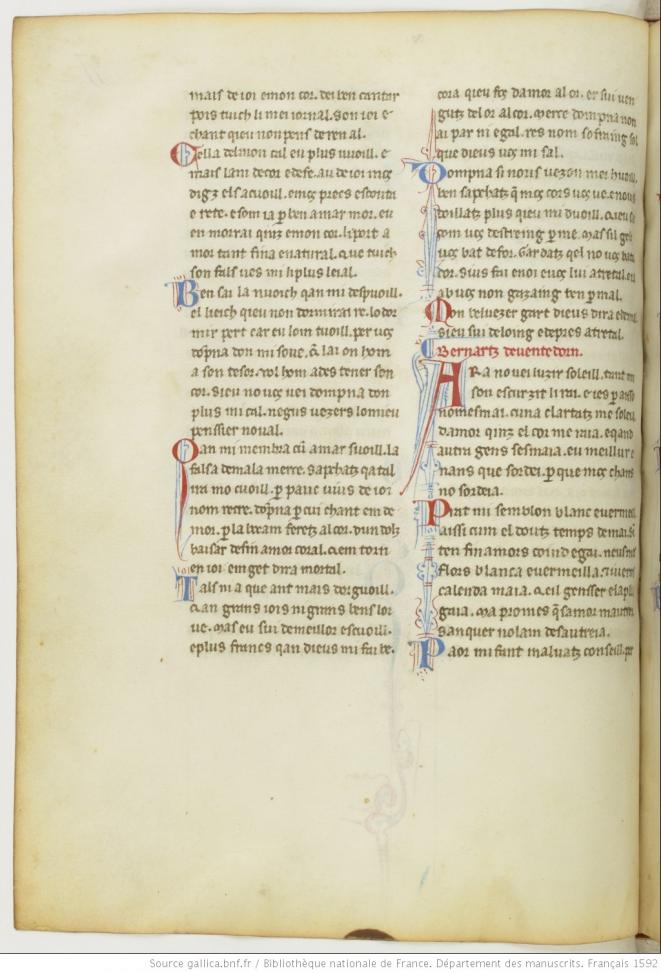 mais de ioi emon cor. dei ben cantar
pois tuich li mei iornal. son ioi e
chant queu non pens de ren al.
Cella del mon cal eu plus uuoill. e
mais lam de cor e de fe. au de ioi mos
digz els acuoill. emos precs escouta
e rete. e som ia per ben amar mor. eu
en morrai quinz emon cor. li port a
mor tant fina e natural. que tuich
son fals ues mi li plus leial.
Ben sai la nuoich qan mi despuoill.
el lieich queu non dormirai re. lo dor
mir pert car eu lom tuoill. per uos
dompna don mi soue. q lai on hom
a son tesor. vol hom ades tener son
cor. si eu no uos uei dompna don
plus mi cal. negus uezers lo mieu
penssier no ual.
Qan mi membra cu amar suoill. la
falsa de mala merce. sapchatz qa tal
ira mo cuoill. per pauc uius de ioi
nom recre. dompna per cui chant em de
mor. per la bocam feretz al cor. dun dolz
baisar de fin amor coral. qem torn
en ioi em get dira mortal.
Tals ni a que ant mais dorguoill.
qan grans iois ni grans bens lor
ue. mas eu sui de meillor escuoill.
e plus francs qan dieus mi fai be.
cora qieu fos damor al or. er sui uen
gutz del or al cor. merce dompna non
ai par ni egal. res nom sofraing sol
que dieus uos mi sal.
Dompna si nous uezon mei huoill.
ben sapchatz q mos cors uos ue. e nous
doillatz plus queu mi duoill. qieu sai
com uos destreing per me. mas sil gelos
uos bat defor. gardatz qel no uos bata
cor. sius fai enoi e uos lui atretal. e ia
ab uos non gazaing ben per mal.
Mon bel uezer gart dieus dira e de mal
sieu sui de loing e de pres atretal.
Bernartz de uentedorn.
ARa no uei luzir soleill. tant mi
son escurzit li rai. e ies per aisso
nom esmai. cuna clartatz me soleilla
damor qinz el cor me raia. e qand
autra gens sesmaia. eu meillure
nans que sordei. per que mos chans
no sordeia.
Prat mi semblon blanc e uermeill
aissi cum el doutz temps de mai. sim
ten fin amors coind e gai. neus mes
flors blanca e uermeilla. e liuerns
calenda maia. qeil gensser e la plus
gaia. ma promes q samor mautrei.
sanquer no lam desautreia.
Paor mi fant maluatz conseill. per
Source gallica.bnf.fr / Bibliothèque nationale de France. Département des manuscrits. Français 1592